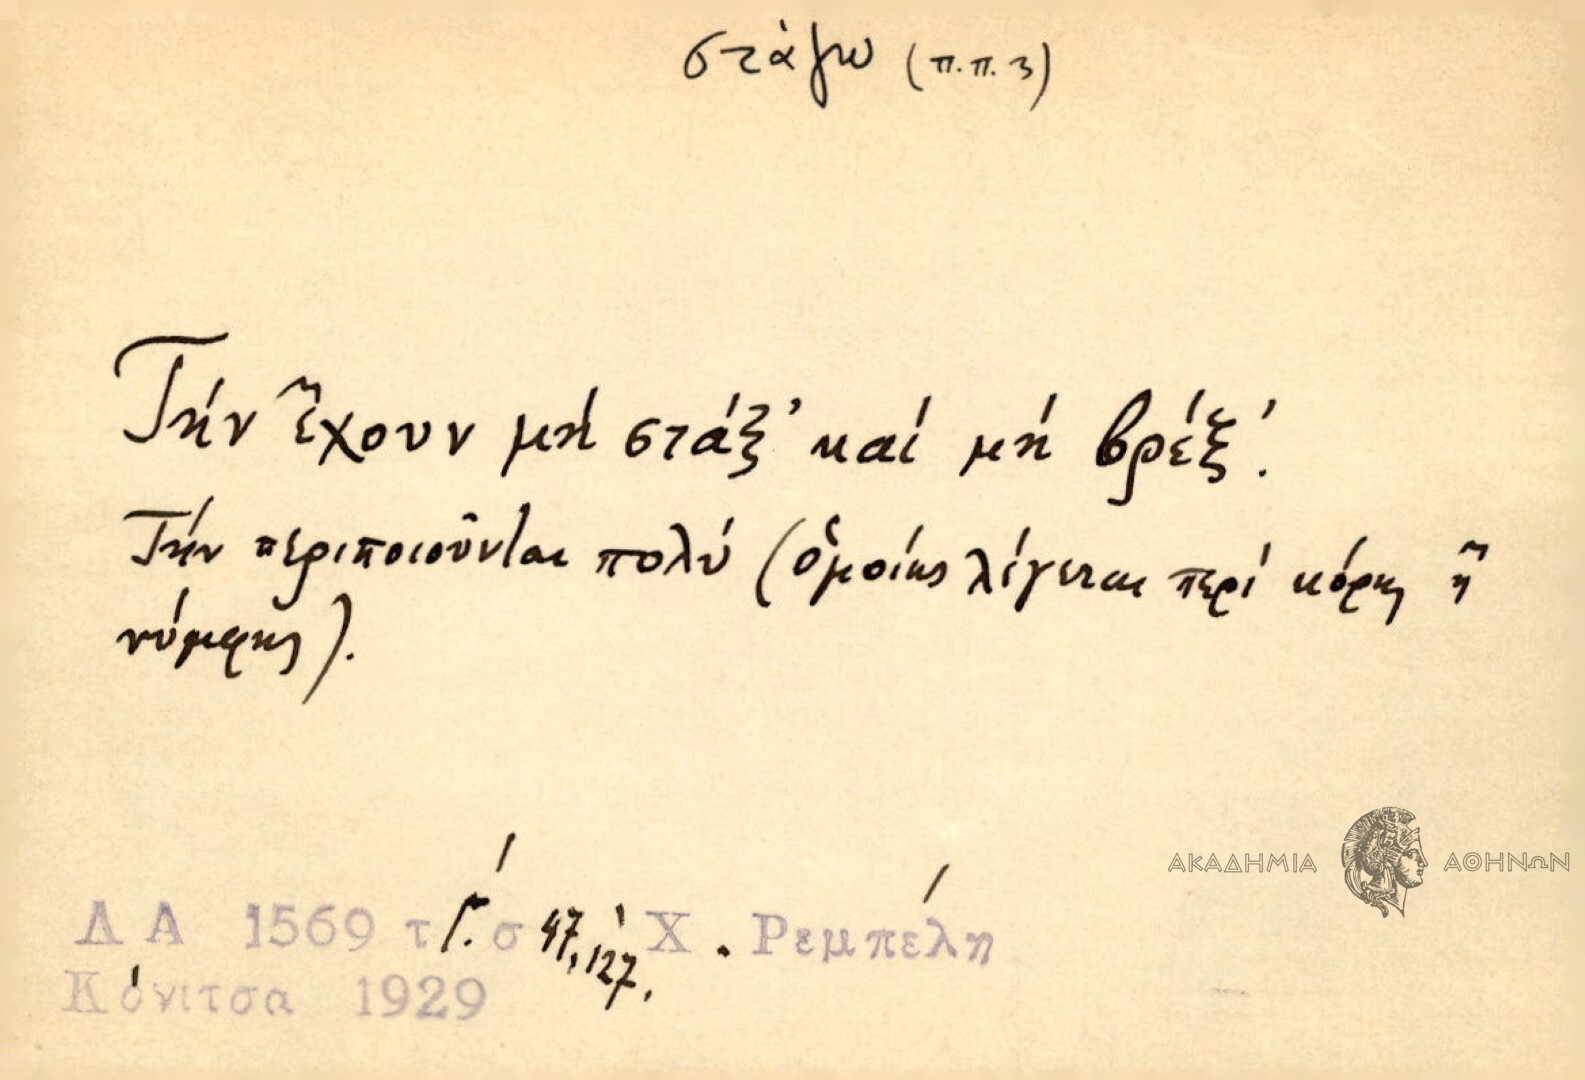 στάζω (π.π. 3)
Τήν ἔχουν μή στάξ' καί μή βρέξ'.
Τήν περιποιοῦνται πολύ (ὁμοίως λέγεται περί κόρης ἤ
νύμφης).
ΑΚΑΔΗΜΙΑ ΑΘΗΝΩΝ
Λ Α 1569 τ Γ'. σ 47, 127, Χ. Ρεμπέλη
Κόνιτσα 1929